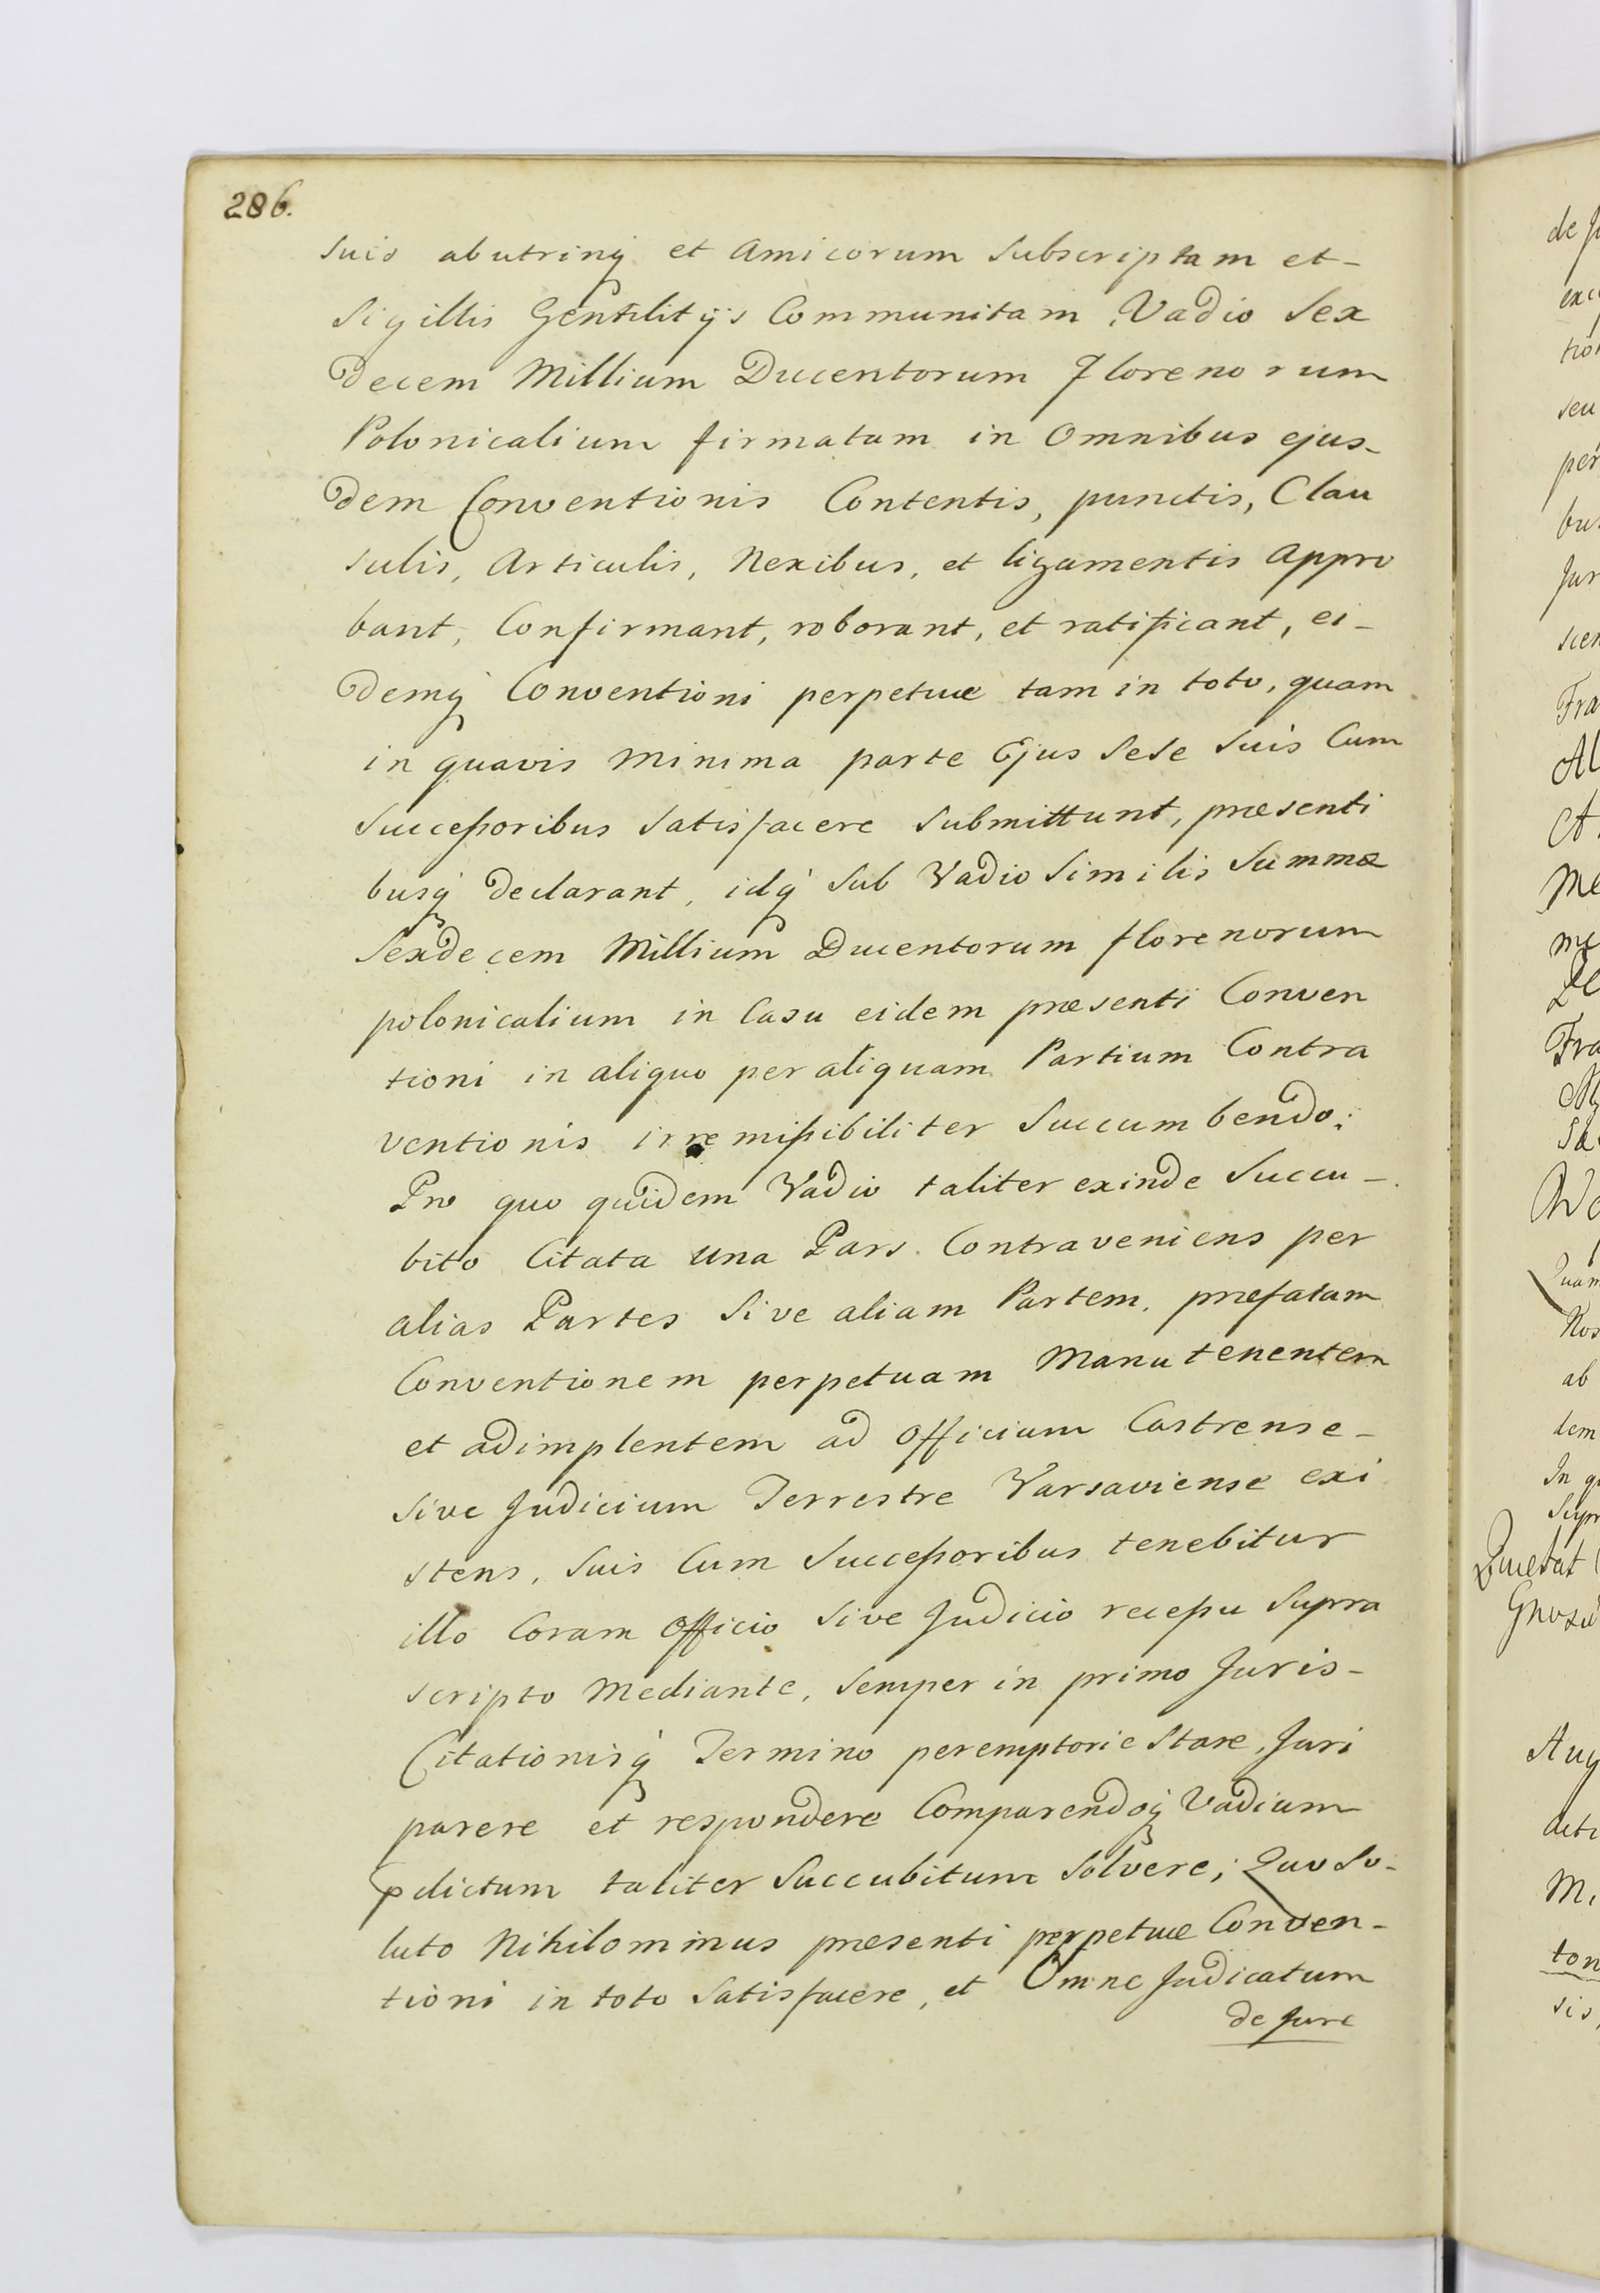 286.
suis abutrinq et Amicorum Subscriptam et-
Sigillis Gentilitijs Communitam, Vadio Sex
decem Millium Ducentorum Florenorum
Polonicalium firmatam in Omnibus ejus-
dem Conventionis Contentis, punctis, Clau
sulis, Articulis, Nexibus, et ligamentis Appro
bant, Confirmant, roborant, et ratificant, ei-
demq Conventioni perpetuæ tam in toto, quam
in quavis minima parte Ejus Sese Suis Cum
Succeßoribus Satisfacere Submittunt, præsenti
busq declarant, idq Sub Vadio Similis Summæ
Sexdecem Millium Ducentorum florenorum
polonicalium in Casu eidem præsenti Conven
tioni in aliquo per aliquam Partium Contra
ventionis irremißibiliter Succumbendo;
Pro quo quidem Vadio taliter exinde Succu-
bito Citata una Pars Contraveniens per
alias Partes Sive aliam Partem, præfatam
Conventionem perpetuam Manutenentem
et adimplentem ad Officium Castrense-
Sive Judicium Terrestre Varsaviense exi
stens, Suis Cum Succeßoribus tenebitur
illo Coram Officio Sive Judicio receßu Supra
scripto Mediante, Semper in primo Juris-
Citationisq Termino peremptorie Stare, Juri
parere et respondere Comparendoq Vadium
pdictum taliter Succubitum Solvere; Quo So-
luto Nihilominus præsenti perpetuæ Conven-
tioni in toto Satisfacere, et Omne Judicatum
de Jure